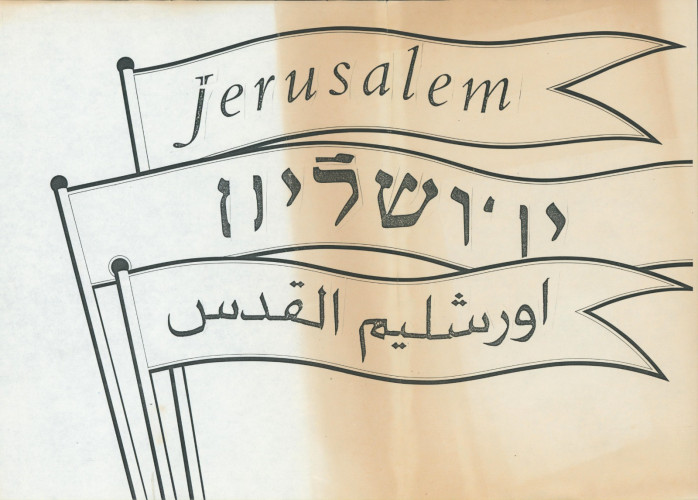 Jerusalem
ירושלים
اورشليم القدس